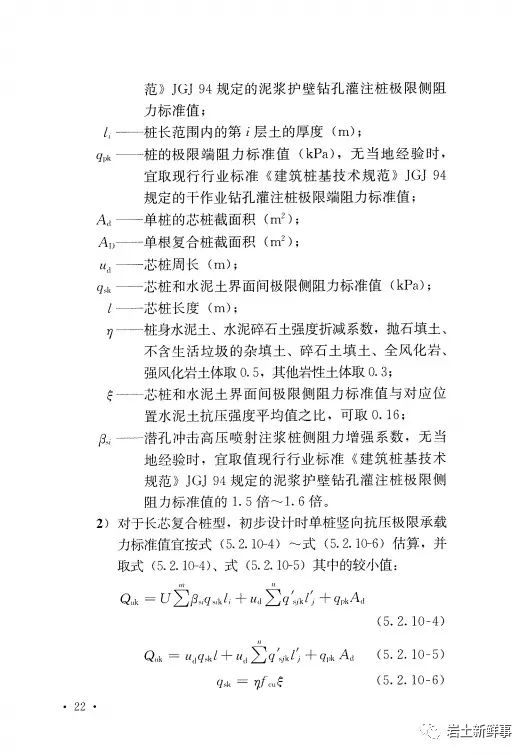 范》JGJ 94 规定的泥浆护壁钻孔灌注桩极限侧阻
力标准值；
lᵢ——桩长范围内的第 i 层土的厚度（m）；
q_pk——桩的极限端阻力标准值（kPa），无当地经验时，
宜取现行行业标准《建筑桩基技术规范》JGJ 94
规定的干作业钻孔灌注桩极限端阻力标准值；
A_d——单桩的芯桩截面积（m²）；
A_D——单根复合桩截面积（m²）；
u_d——芯桩周长（m）；
q_sk——芯桩和水泥土界面间极限侧阻力标准值（kPa）；
l——芯桩长度（m）；
η——桩身水泥土、水泥碎石土强度折减系数，抛石填土、
不含生活垃圾的杂填土、碎石土填土、全风化岩、
强风化岩土体取 0.5，其他岩性土体取 0.3；
ξ——芯桩和水泥土界面间极限侧阻力标准值与对应位
置水泥土抗压强度平均值之比，可取 0.16；
β_si——潜孔冲击高压喷射注浆桩侧阻力增强系数，无当
地经验时，宜取值现行行业标准《建筑桩基技术
规范》JGJ 94 规定的泥浆护壁钻孔灌注桩极限侧
阻力标准值的 1.5 倍～1.6 倍。
2）对于长芯复合桩型，初步设计时单桩竖向抗压极限承载
力标准值宜按式（5.2.10-4）～式（5.2.10-6）估算，并
取式（5.2.10-4）、式（5.2.10-5）其中的较小值：
Q_uk = U∑^m β_si q_sik lᵢ + u_d ∑^n q′_sjk l′_j + q_pk A_d
（5.2.10-4）
Q_uk = u_d q_sk l + u_d ∑^n q′_sjk l′_j + q_pk A_d （5.2.10-5）
q_sk = η f_cu ξ （5.2.10-6）
· 22 ·
岩土新鲜事